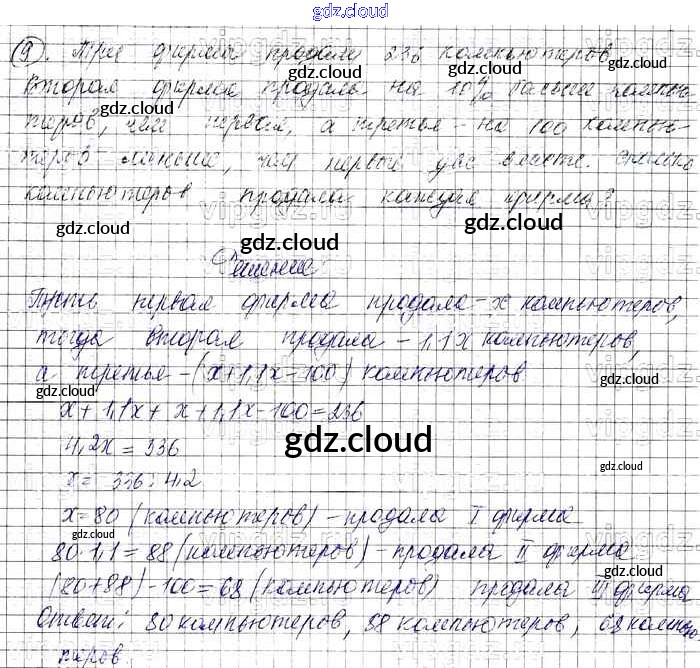 gdz.cloud
9. Три фирмы продали 236 компьютеров.
Вторая фирма продала на 10% больше компью-
теров, чем первая, а третья - на 100 компью-
теров меньше, чем первые две вместе. Сколько
компьютеров продала каждая фирма?
Решение
Пусть первая фирма продала - x компьютеров,
тогда вторая продала - 1,1x компьютеров,
а третья - (x+1,1x-100) компьютеров
x+1,1x+x+1,1x-100=236
4,2x=336
x=336:4,2
x=80 (компьютеров) - продала I фирма
80·1,1=88 (компьютеров) - продала II фирма
(80+88)-100=68 (компьютеров) продала III фирма
Ответ: 80 компьютеров, 88 компьютеров, 68 компью-
теров.